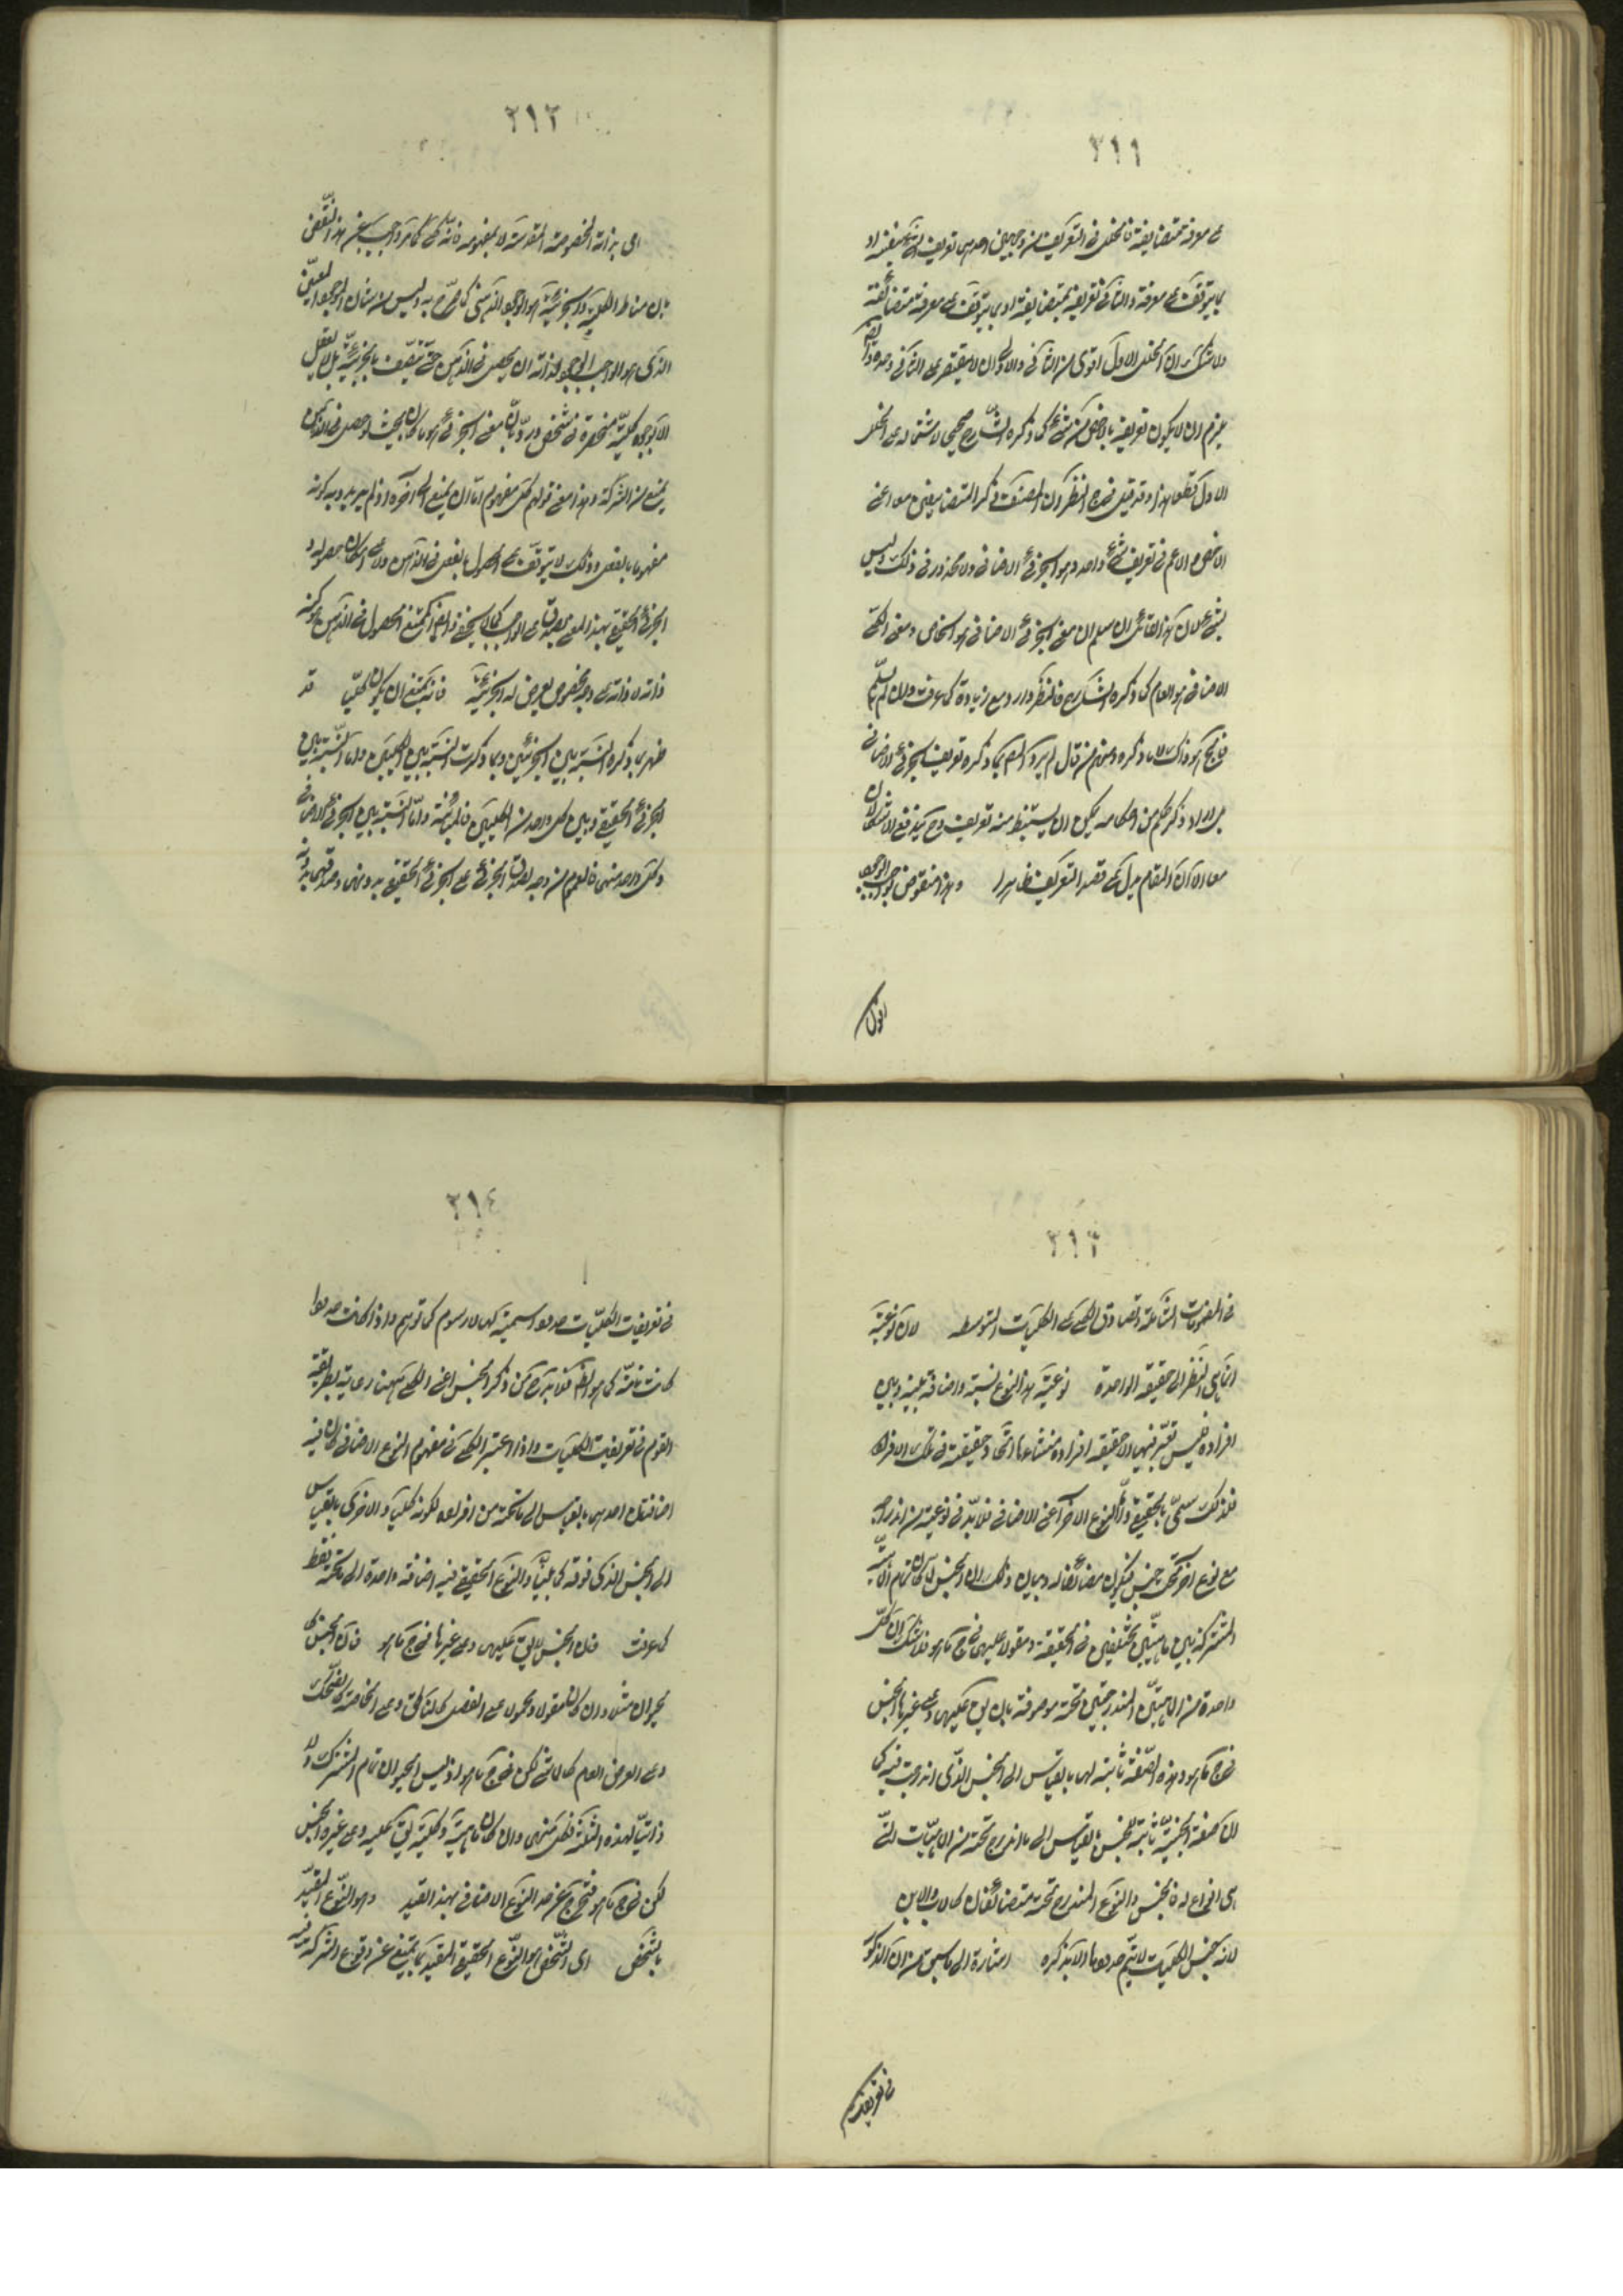 ٣١١
على معرفة متضايفه فالخلل في التعريف من وجهين احدهما تعريف الشئ بنفسه او
بما يتوقف على معرفته والثاني تعريفه بمتضايفه او بما يتوقف على معرفة متضايفه
ولا شك ان الخلل الاول اقوى من الثاني والاولى ان لا يقتصر على الثاني وحده
يلزم ان لا يكون تعريفه بالاخص من شئ كما ذكره الشارح صحيحا لاشتماله على الخلل
الاول قطعا هذا وقد قيل في النظر ان المصنف ذكر المتضايفين معا اعنى
الاخص والاعم في تعريف شئ واحد وهو الجزئي الاضافي ولا محذور في ذلك وليس
بشئ لان هذا القائل ان سلم ان معنى الجزئي الاضافي هو الخاص ومعنى الكلي
الاضافي هو العام كما ذكره الشارح فالنظر وارد مع زيادة كما عرفت وان لم يسلم
ذلك لما ذكره ومنهم من قال لم يرد المص بما ذكره تعريف الجزئي الاضافي
بل اراد ذكر حكم من احكامه يمكن ان يستنبط منه تعريفه وح يندفع الاشكالان
معا الا ان المقام يدل على قصد التعريف ظاهرا وهذا منقوض بواجب الوجود
اقول
٣١٢
اى بذاته المخصوصة المقدسة لا بمفهومه فانه كلي كما مر واجيب عن هذا النقض
بان مناط الكلية والجزئية هو الوجود الذهني كما صرح به وليس من شأن الموجود المعين
الذي هو الواجب الوجود لذاته ان يحصل في الذهن حتى يتصف بالجزئية بل لا يعقل
الا بوجوه كلية منحصرة في شخص ورد بان معنى الجزئي هو ما كان بحيث لو حصل في الذهن
يمنع من الشركة وهذا معنى قولهم كل مفهوم اما ان يمنع الى آخره اذ لم يريدوا به كونه
مفهوما بالفعل وذلك لا يتوقف على الحصول بالفعل في الذهن ولا على امكان حصوله و
الجزئي الحقيقي بهذا المعنى يصدق على الواجب كما لا يخفى
ذاته لا ذاته على وجه مخصوص يعرض له الجزئية فانه يمتنع ان يكون كليا قد
ظهر بما ذكره النسبة بين الجزئيين وبما ذكرت النسبة بين الكليين واما النسبة بين
الجزئي الحقيقي وبين كل واحد من الكليين فالمباينة واما النسبة بين الجزئي الاضافي
وكل واحد منهما فالعموم من وجه لصدق الجزئي على الجزئي الحقيقي بدونهما وصدقهما بدونه
٣١٣
في المفهومات الشاملة وتصادق الكلي على الكليات المتوسطة لان نوعيته
انما هي بالنظر الى حقيقته الواحدة نوعية هذا النوع نسبة واضافة بينه وبين
افراده فليس تعتبر فيها الا حقيقة افراده منشأها اتحاد حقيقته في تلك الافراد
فلذلك سمى بالحقيقي واما النوع الآخر اعنى الاضافي فلا بد في نوعيته من اندراجه
مع نوع آخر تحت جنس فيكون مضائفا له وبيان ذلك ان الجنس لما كان تمام الماهية
المشتركة بين ماهيتين مختلفين في الحقيقة ومقولا عليهما في جواب ما هو فلا شك ان كل
واحدة من الماهيتين المندرجتين تحته موصوفة بانه يق عليهما وعلى غيرها الجنس
في جواب ما هو وهذه الصفة ثابتة لها بالقياس الى الجنس الذي اندرجت فيه كما
ان صفة الجنسية ثابتة للجنس بالقياس الى ما اندرج تحته من الماهيات التي
هى انواع له فالجنس والنوع المندرج تحته متضائفان كالاب والابن
لانه جنس الكليات لا يتم حدودها الا بذكره اشارة الى ما سبق من ان المذكور
في تعريفات
٣١٤
في تعريفات الكليات حدود اسمية لها لا رسوم كما توهم واذا كانت حدودا
كانت تامة كما هو الظ فلا بد من ذكر الجنس اعنى الكلي ههنا رعاية لطريقة
القوم في تعريفات الكليات واذا اعتبر الكلي في مفهوم النوع الاضافي كان فيه
اضافتان احدهما بالقياس الى ما تحته من افراده لكونه كليا والاخرى بالقياس
الى الجنس الذي فوقه كما بينا والنوع الحقيقي فيه اضافة واحدة الى ما تحته فقط
كما عرفت فان الجنس لا يق عليهما وعلى غيرها في جواب ما هو فان الجنس كا
لحيوان مثلا وان كان مقولا ومحمولا على الفصل كالناطق وعلى الخاصة كالضاحك
وعلى العرض العام كالماشى لكن في جواب ما هو اذ ليس الحيوان تمام المشترك ولا
ذاتيا لهذه الثلثة فكل منهما وان كان ماهية وكلية يق عليه وعلى غيره الجنس
لكن في جواب ما هو فتخرج عن حد النوع الاضافي بهذا القيد وهو النوع المقيد
بالتشخص اى الشخص هو النوع الحقيقي المقيد بما يمنع عن وقوع الشركة فيه